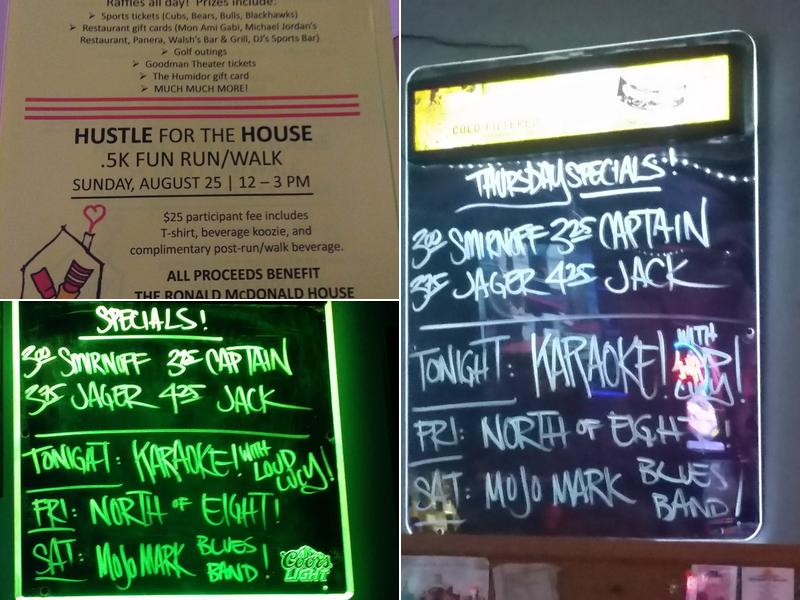 Raffles all day! Prizes include:
➢ Sports tickets (Cubs, Bears, Bulls, Blackhawks)
➢ Restaurant gift cards (Mon Ami Gabi, Michael Jordan's
Restaurant, Panera, Walsh's Bar & Grill, DJ's Sports Bar)
➢ Golf outings
➢ Goodman Theater tickets
➢ The Humidor gift card
➢ MUCH MUCH MORE!
HUSTLE FOR THE HOUSE
.5K FUN RUN/WALK
SUNDAY, AUGUST 25 | 12 – 3 PM
$25 participant fee includes
T-shirt, beverage koozie, and
complimentary post-run/walk beverage.
ALL PROCEEDS BENEFIT
THE RONALD McDONALD HOUSE
SPECIALS!
300 SMIRNOFF 325 CAPTAIN
375 JAGER 425 JACK
TONIGHT: KARAOKE! WITH
LOUD
LUCY!
FRI: NORTH OF EIGHT!
SAT: MOJO MARK BLUES
BAND!
Coors
LIGHT
COLD FILTERED
THURSDAY SPECIALS!
300 SMIRNOFF 325 CAPTAIN
375 JAGER 425 JACK
TONIGHT: KARAOKE! WITH
LUCY!
FRI: NORTH OF EIGHT!
SAT: MOJO MARK BLUES
BAND!